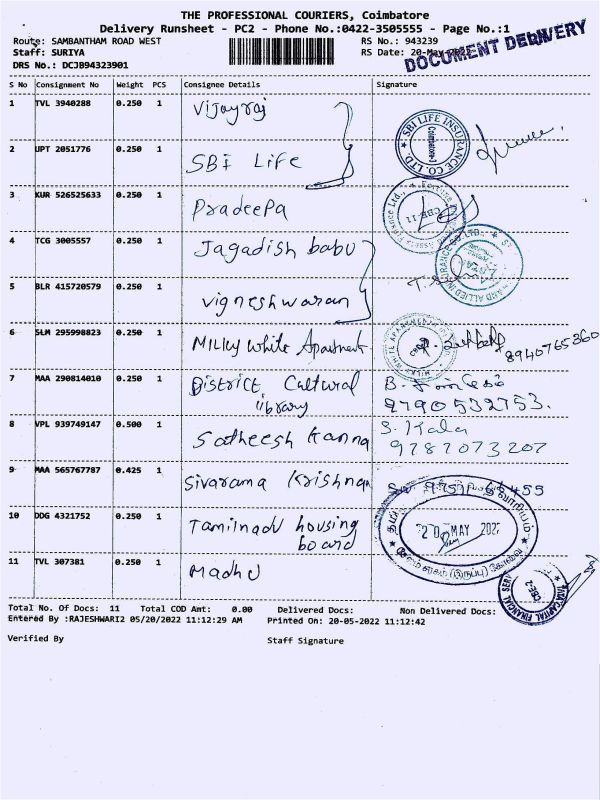 THE PROFESSIONAL COURIERS, Coimbatore
Delivery Runsheet - PC2 - Phone No.:0422-3505555 - Page No.:1
Route: SAMBANTHAM ROAD WEST RS No.: 943239
Staff: SURIYA RS Date: 20-May-2022
DOCUMENT DELIVERY
DRS No.: DCJB94323901
S No Consignment No Weight PCS Consignee Details Signature
1 TVL 3940288 0.250 1 Vijayraj
SBI LIFE INSURANCE CO. LTD.
Coimbatore-3
2 UPT 2051776 0.250 1 SBi Life
3 KUR 526525633 0.250 1 Pradeepa
CBE-11
4 TCG 3005557 0.250 1 Jagadish babu
5 BLR 415720579 0.250 1 Vigneshwaran
6 SLM 295998823 0.250 1 Milky White Apartment
8940765360
7 MAA 290814010 0.250 1 District Cultural
library
9790532753.
8 VPL 939749147 0.500 1 Satheesh Kanna
S. Kala
9787073207
9 MAA 565767787 0.425 1 Sivarama Krishnan
10 DDG 4321752 0.250 1 Tamilnadu housing
board
20 MAY 2022
11 TVL 307381 0.250 1 Madhu
TATA CAPITAL FINANCIAL SERV
CBE-2
Total No. Of Docs: 11 Total COD Amt: 0.00 Delivered Docs: Non Delivered Docs:
Entered By :RAJESHWARI2 05/20/2022 11:12:29 AM Printed On: 20-05-2022 11:12:42
Verified By Staff Signature